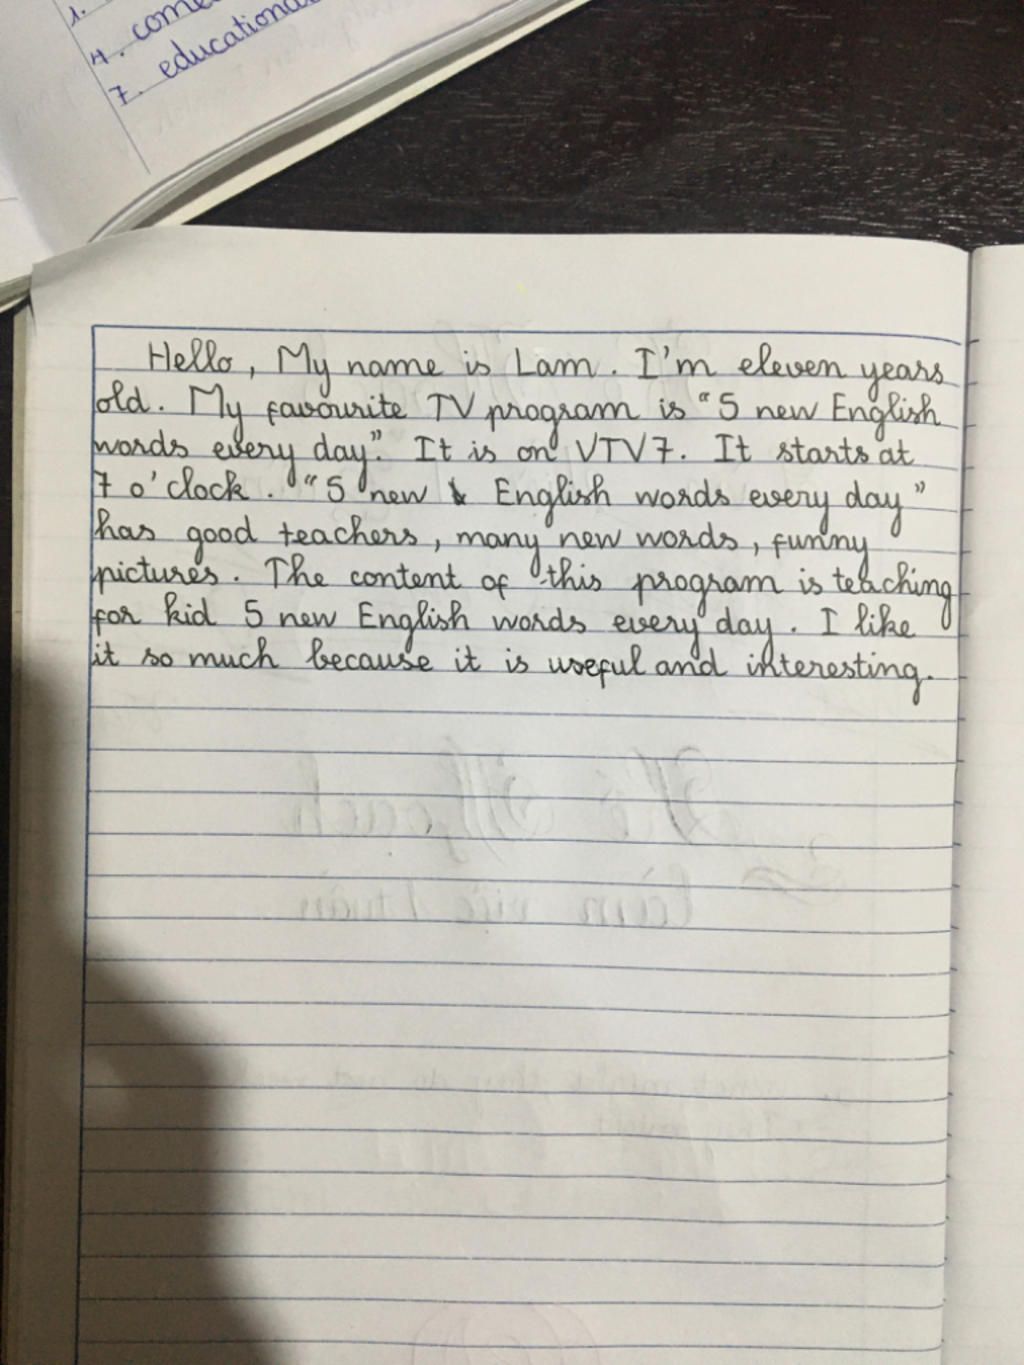 1.
4. come
7. educational
Hello, My name is Lam. I'm eleven years
old. My favourite TV program is "5 new English
words every day". It is on VTV7. It starts at
7 o'clock. "5 new English words every day"
has good teachers, many new words, funny
pictures. The content of this program is teaching
for kid 5 new English words every day. I like
it so much because it is useful and interesting.